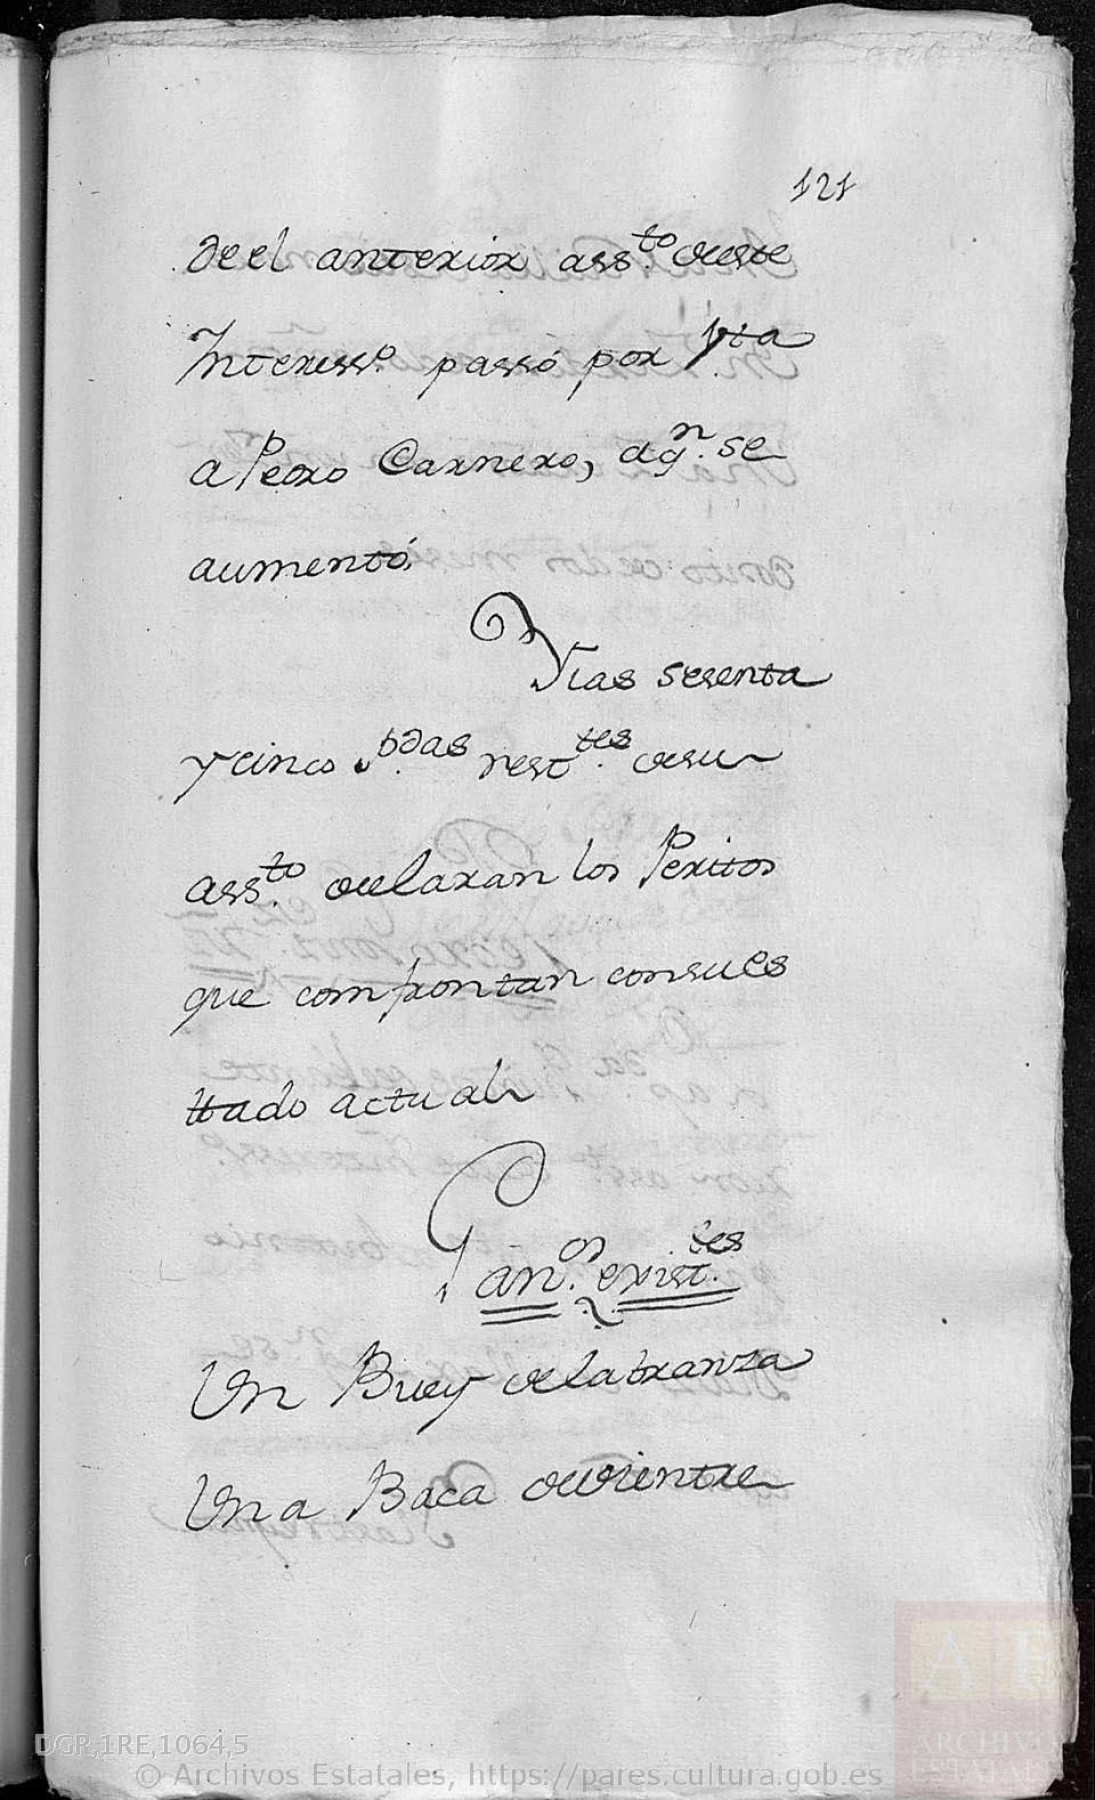 121
de el anterior ass.to de este
Interess.o passó por V.ta
a Pedro Carnero, a q.n se
aumentó.
Ylas sesenta
y cinco p.das rest.tes de su
ass.to declaran los Peritos
que confrontan con su es
ttado actual
Gan.os exist.tes
Un Buey de labranza
Una Baca de vientre
DGR,1RE,1064,5
© Archivos Estatales, https://pares.cultura.gob.es
AE
ARCHIVOS
ESTATALES